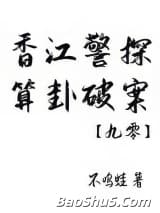 香江警探
算卦破案
【九零】
不鸣蛙 著
BaoShu8.Com